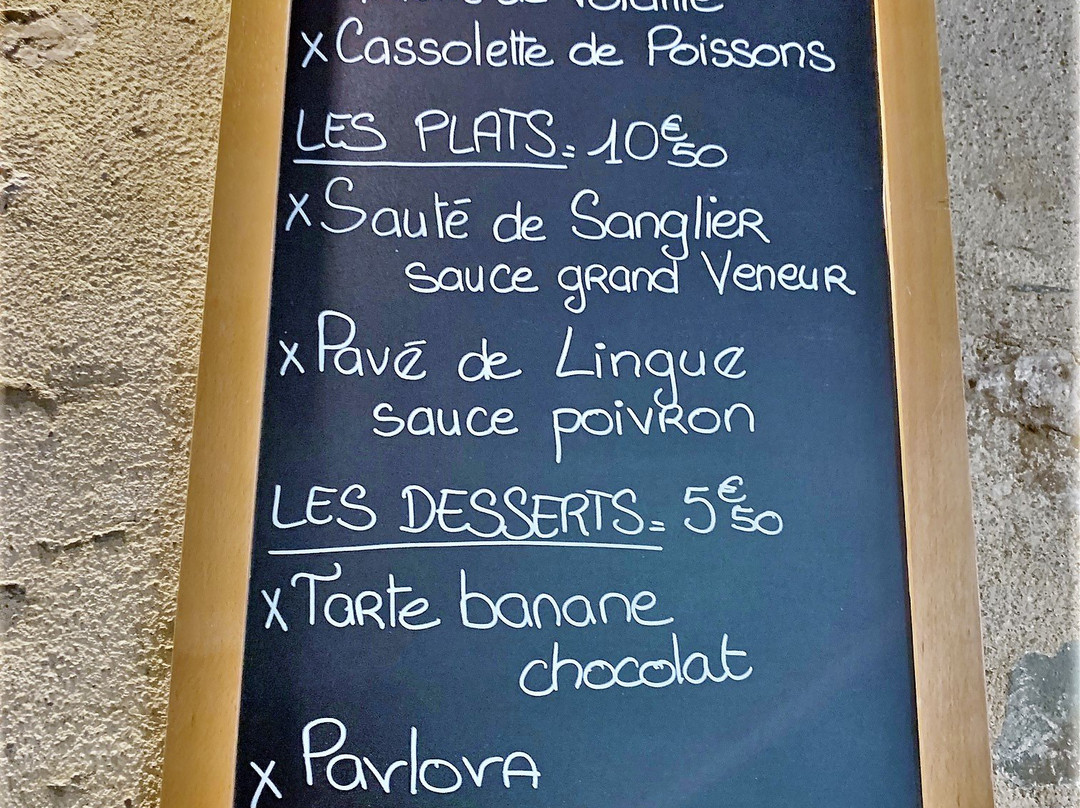 de Volaille
x Cassolette de Poissons
LES PLATS = 10€50
x Sauté de Sanglier
sauce grand Veneur
x Pavé de Lingue
sauce poivron
LES DESSERTS = 5€50
x Tarte banane
chocolat
x Pavlova